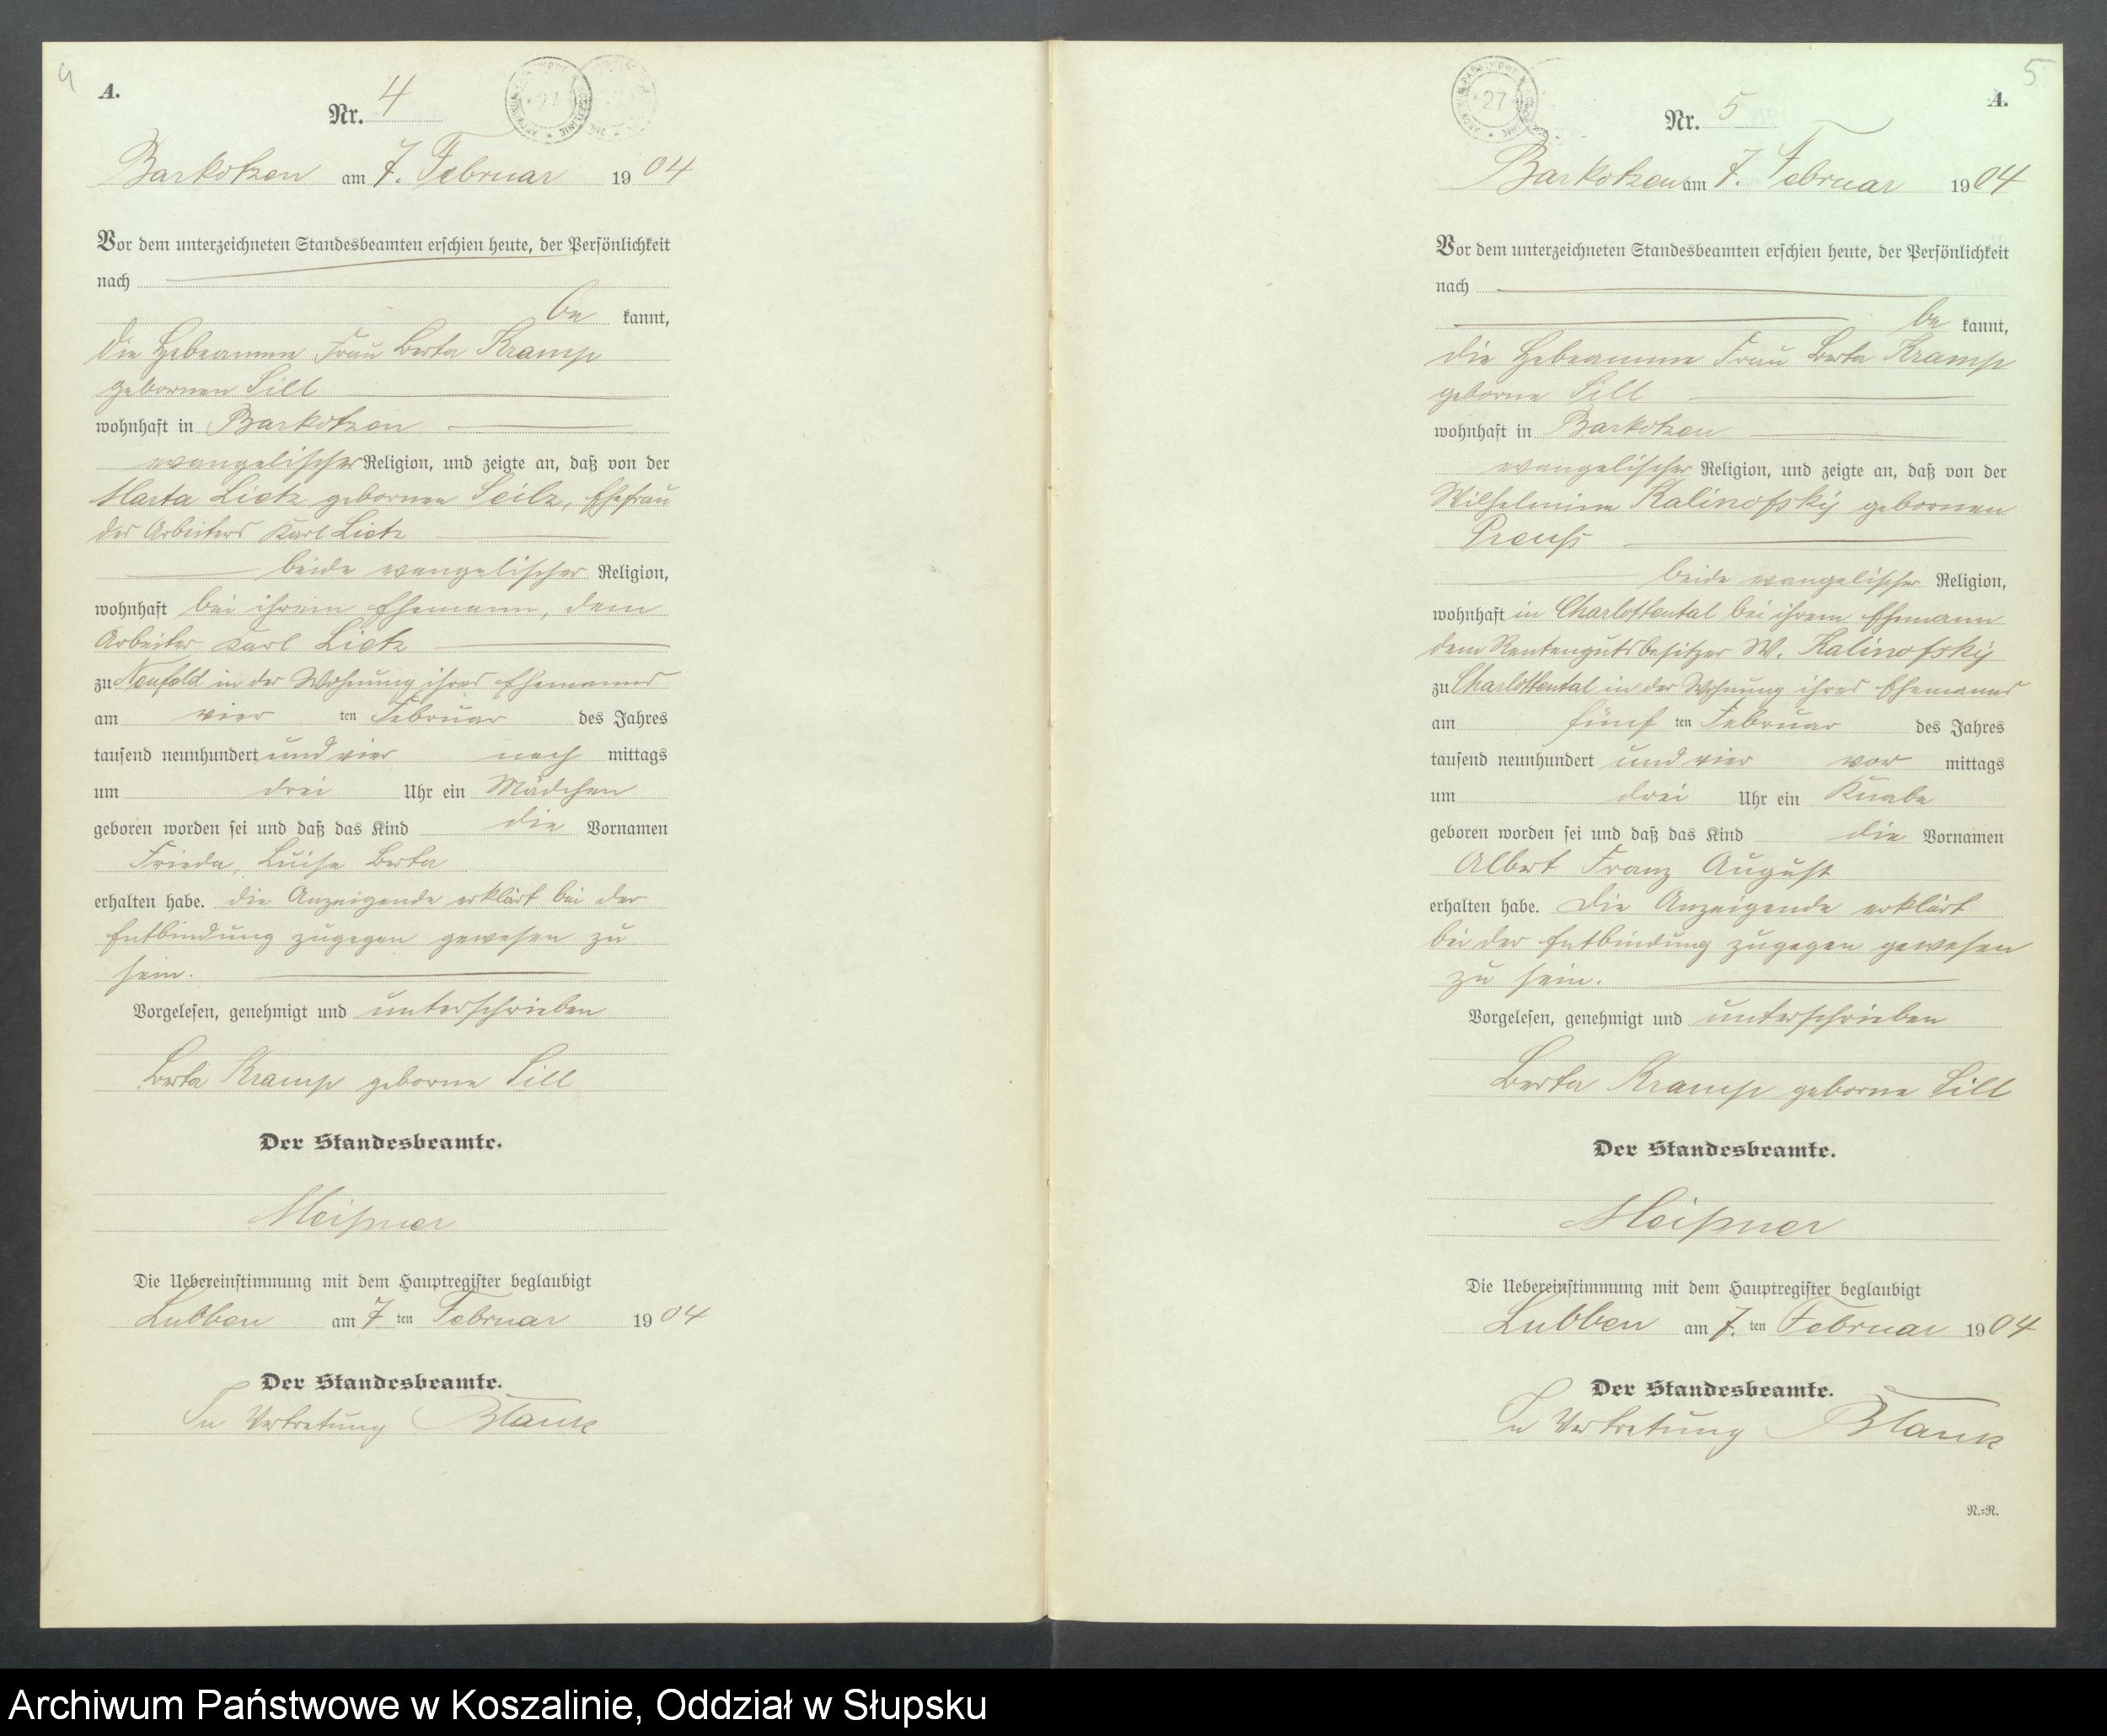 4
A.
Nr. 4
Barkotzen am 7. Februar 1904
Vor dem unterzeichneten Standesbeamten erschien heute, der Persönlichkeit
nach
be kannt,
die Hebeamme Frau Berta Kramp
gebornen Sill
wohnhaft in Barkotzen
evangelischer Religion, und zeigte an, daß von der
Marta Lietz gebornen Seilz, Ehefrau
des Arbeiters Karl Lietz
beide evangelischer Religion,
wohnhaft bei ihrem Ehemann, dem
Arbeiter Karl Lietz
zu Neufeld in der Wohnung ihres Ehemannes
am vier ten Februar des Jahres
tausend neunhundert und vier nach mittags
um drei Uhr ein Mädchen
geboren worden sei und daß das Kind die Vornamen
Frieda, Luise Berta
erhalten habe. die Anzeigende erklärt bei der
Entbindung zugegen gewesen zu
sein.
Vorgelesen, genehmigt und unterschrieben
Berta Kramp geborne Sill
Der Standesbeamte.
Meißner
Die Uebereinstimmung mit dem Hauptregister beglaubigt
Lubben am 7 ten Februar 1904
Der Standesbeamte.
In Vertretung Blank
5
A.
27
Nr. 5
Barkotzen am 7. Februar 1904
Vor dem unterzeichneten Standesbeamten erschien heute, der Persönlichkeit
nach
be kannt,
die Hebeamme Frau Berta Kramp
geborne Sill
wohnhaft in Barkotzen
evangelischer Religion, und zeigte an, daß von der
Wilhelmine Kalinofsky gebornen
Preuß
beide evangelischer Religion,
wohnhaft in Charlottental bei ihrem Ehemann
dem Rentengutsbesitzer W. Kalinofsky
zu Charlottental in der Wohnung ihres Ehemannes
am fünf ten Februar des Jahres
tausend neunhundert und vier vor mittags
um drei Uhr ein Knabe
geboren worden sei und daß das Kind die Vornamen
Albert Franz August
erhalten habe. Die Anzeigende erklärt
bei der Entbindung zugegen gewesen
zu sein.
Vorgelesen, genehmigt und unterschrieben
Berta Kramp geborne Sill
Der Standesbeamte.
Meißner
Die Uebereinstimmung mit dem Hauptregister beglaubigt
Lubben am 7. ten Februar 1904
Der Standesbeamte.
In Vertretung Blank
N.=N.
Archiwum Państwowe w Koszalinie, Oddział w Słupsku